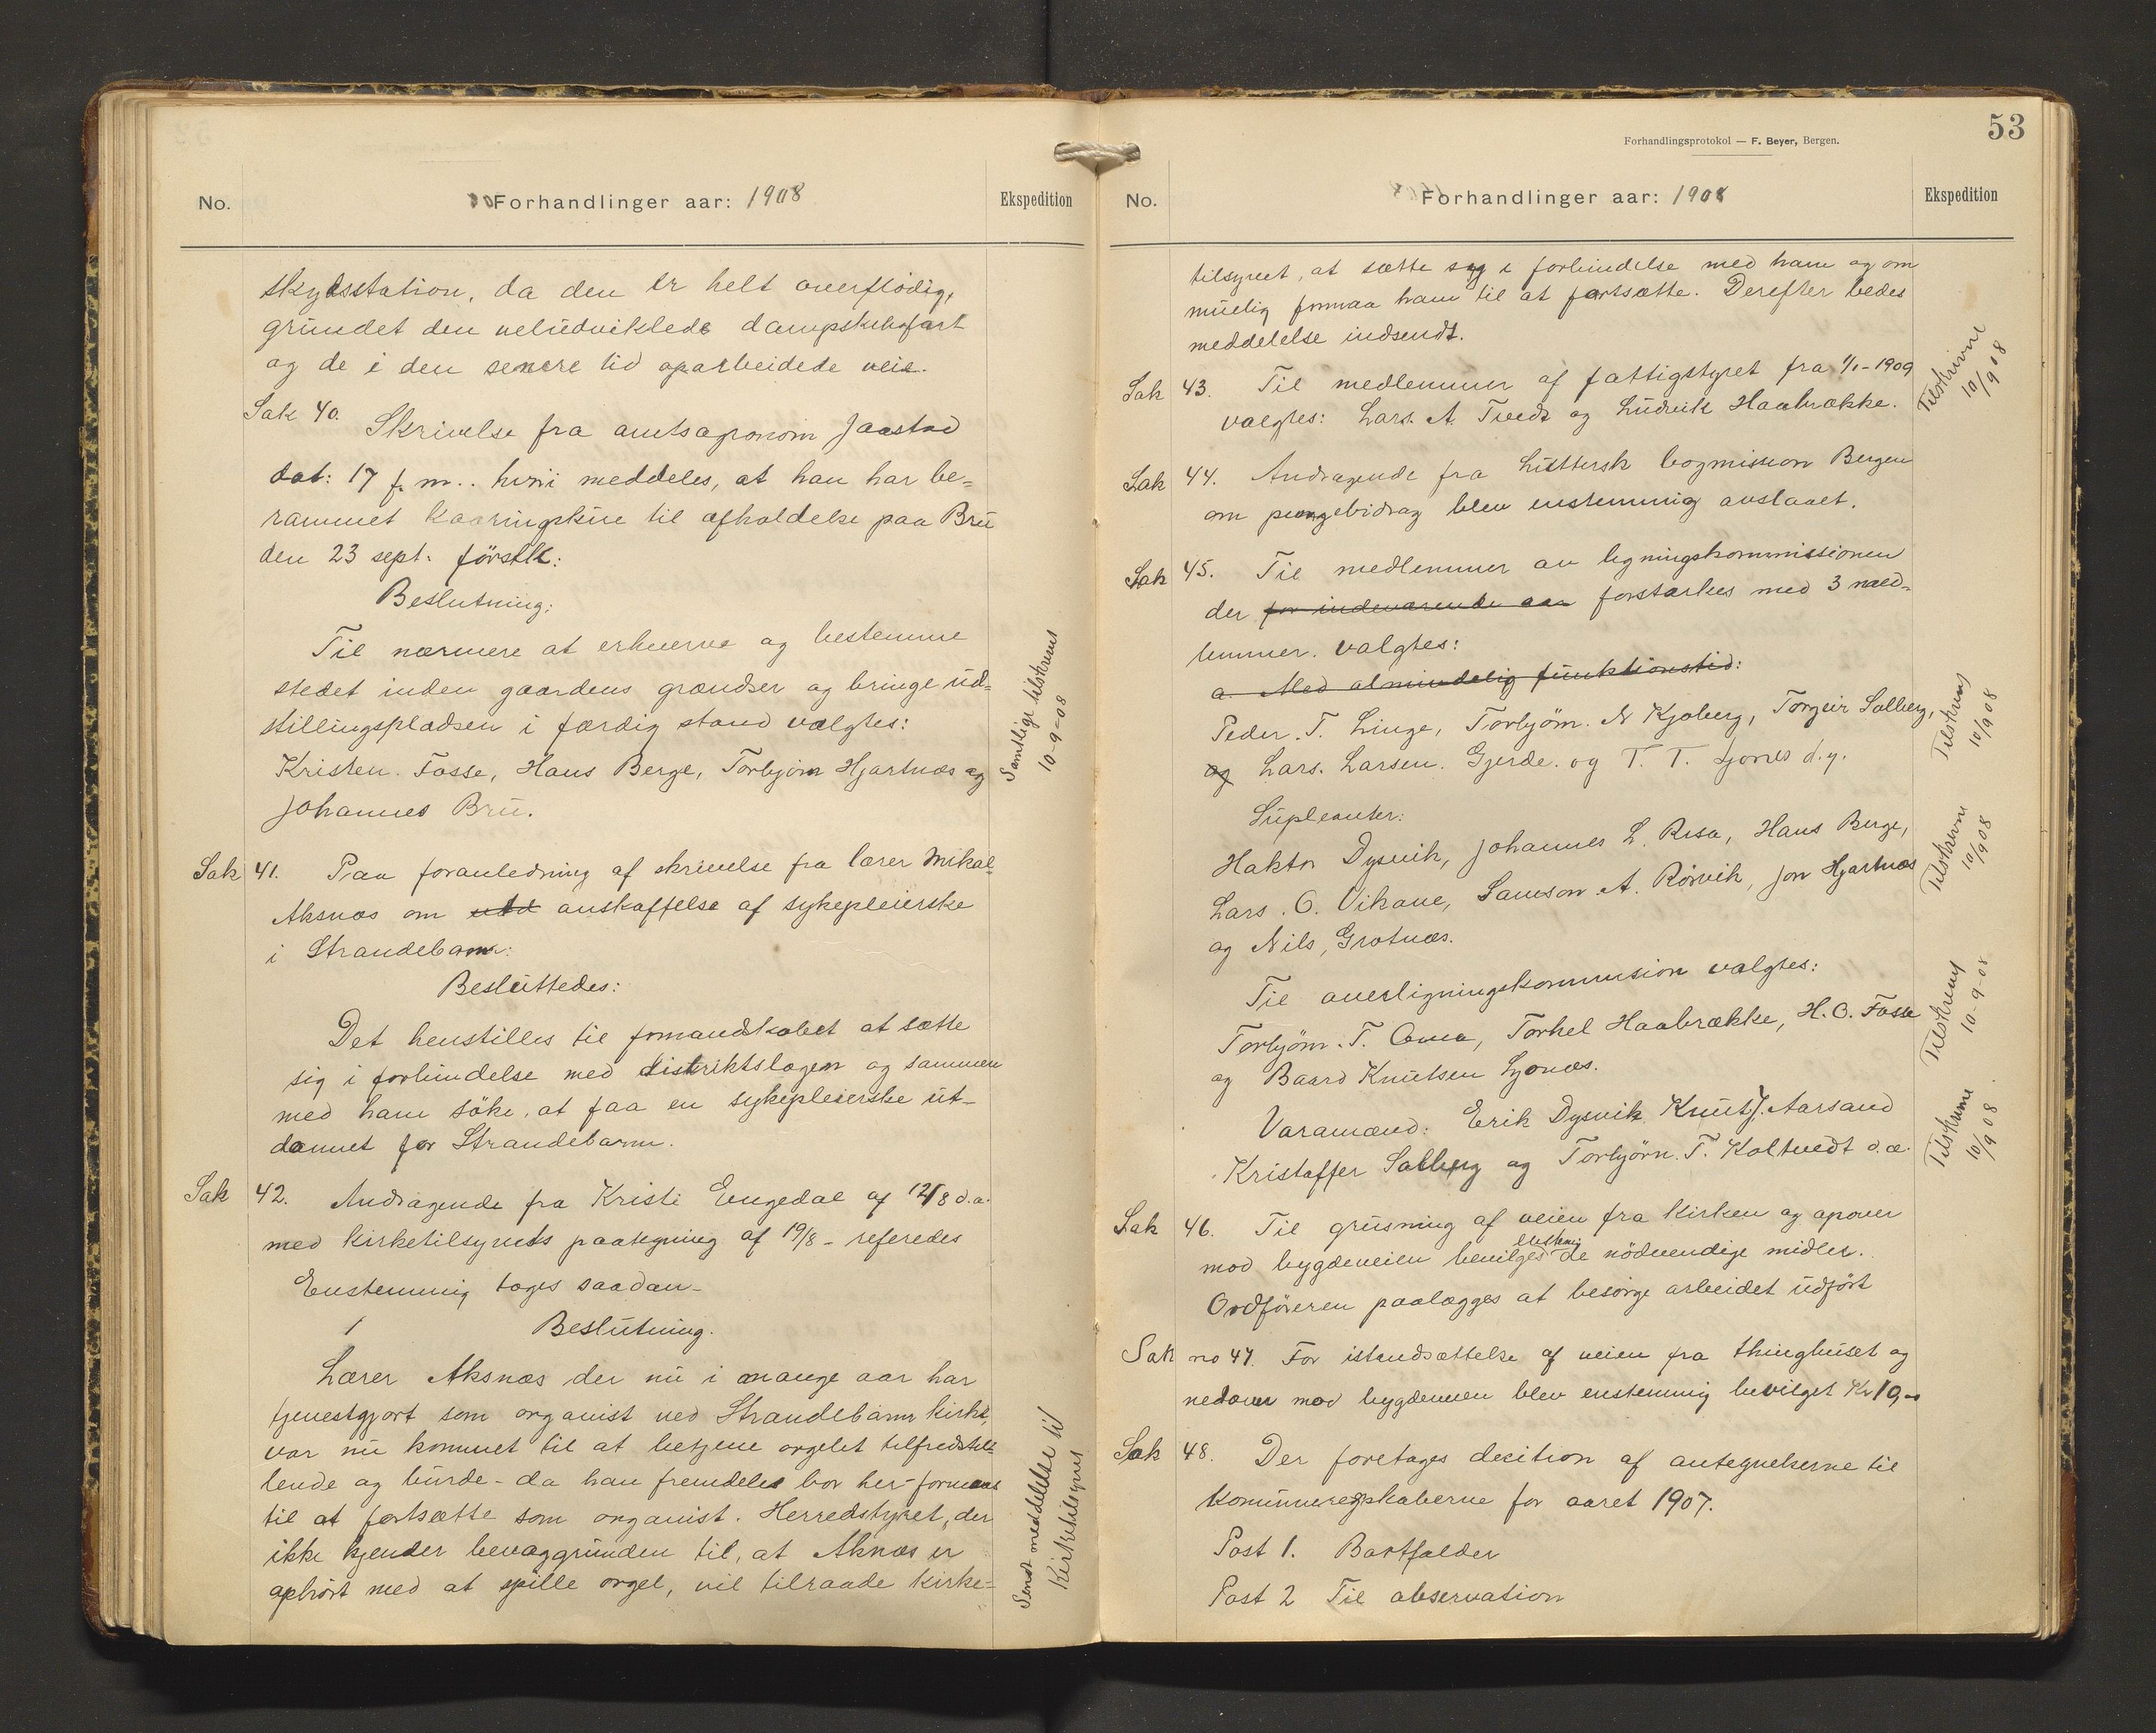 No.
Forhandlinger aar: 1908
Ekspedition
skydsstation, da den er helt overflödig,
grundet den veludviklede dampskibsfart
og de i den senere tid oparbeidede veie.
Sak 40. Skrivelse fra amtsagronom Jaastad
dat: 17 f. m.. hvori meddeles, at han har be=
rammet kaaringskue til afholdelse paa Bru
den 23 sept. förstk:
Beslutning:
Til nærmere at erhverve og bestemme
stedet inden gaardens grændser og bringe ud=
stillingspladsen i færdig stand valgtes:
Kristen. Fosse, Hans Berge, Torbjörn Hjartnæs og
Johannes Bru.
Samtlige tilskrevns
10-9-08
Sak 41. Paa foranledning af skrivelse fra lærer Mikal
Aksnæs om anskaffelse af sykepleierske
i Strandebarm:
Besluttedes:
Det henstilles til formandskabet at sætte
sig i forbindelse med distriktslægen og sammen
med ham söke, at faa en sykepleierske ut-
dannet for Strandebarm.
Sak 42. Andragende fra Kristi Engedal af 12/8 d.a.
med kirketilsynets paategning af 19/8 - referedes
Enstemmig toges saadan-
Beslutning.
Lærer Aksnæs der nu i mange aar har
tjenestgjort som organist ved Strandebarm kirke,
var nu kommet til at betjene orgelet tilfredstil=
lende og burde - da han fremdeles bor her - formaaes
til at fortsætte som organist. Herredstyret, der
ikke kjender bevæggrunden til, at Aknæs er
ophört med at spille orgel, vil tilraade kirke=
Sendt meddelelse til
Kirketilsynet
Forhandlingsprotokol — F. Beyer, Bergen.
53
No.
Forhandlinger aar: 1908
Ekspedition
tilsynet, at sætte seg i forbindelse med ham og om
muelig formaa ham til at fortsætte. Derefter bedes
meddelelse indsendt.
Sak 43. Til medlemmer af fattigstyret fra 1/1-1909
valgtes: Lars. A. Tvedt og Ludvik Haabrække.
Tilskrevne
10/9 08
Sak 44. Andragende fra Luttersk bogmission Bergen
om pengebidrag blev enstemmig avslaaet.
Sak 45. Til medlemmer av ligningskommissionen
der for indeværende aar forstærkes med 3 med-
lemmer. valgtes:
a. Med almindelig funktionstid:
Peder. T. Linge, Torbjörn. N Kjoberg, Torgeir Solberg,
og Lars. Larsen. Gjerde. og T. T. Ljones d.y.
Tilskrevns
10/9 08
Supleanter:
Haktor Dysvik, Johannes L. Resa, Hans Berge,
Lars. O. Vikane, Samson. A. Rörvik, Jon Hjartnæs
og Nils, Grotnæs.
Tilskrevne
10/9 08
Til overligningskommission valgtes:
Torbjörn. T. Oma, Torkel Haabrække, H. O. Fosse
og Baard Knutsen Ljonæs.
Tilskrevns
10-9-08
Varamænd: Erik Dysvik Knut J. Aarsand
Kristoffer Solberg og Torbjörn. T. Holtvedt d.æ.
Tilskrevne
10/9 08.
Sak 46. Til grusning af veien fra kirken og apover
enstemig
mod bygdeveien bevilges de nödvendige midler.
Ordföreren paalægges at besörge arbeidet udfört
Sak no 47. For istandsættelse af veien fra thinghuset og
nedover mod bygdeveien blev enstemmig bevilget Kr 10,-
Sak 48. Der foretages decition af antegnelserne til
kommuneregnskaberne for aaret 1907.
Post 1. Bortfalder
Post 2 Til observation